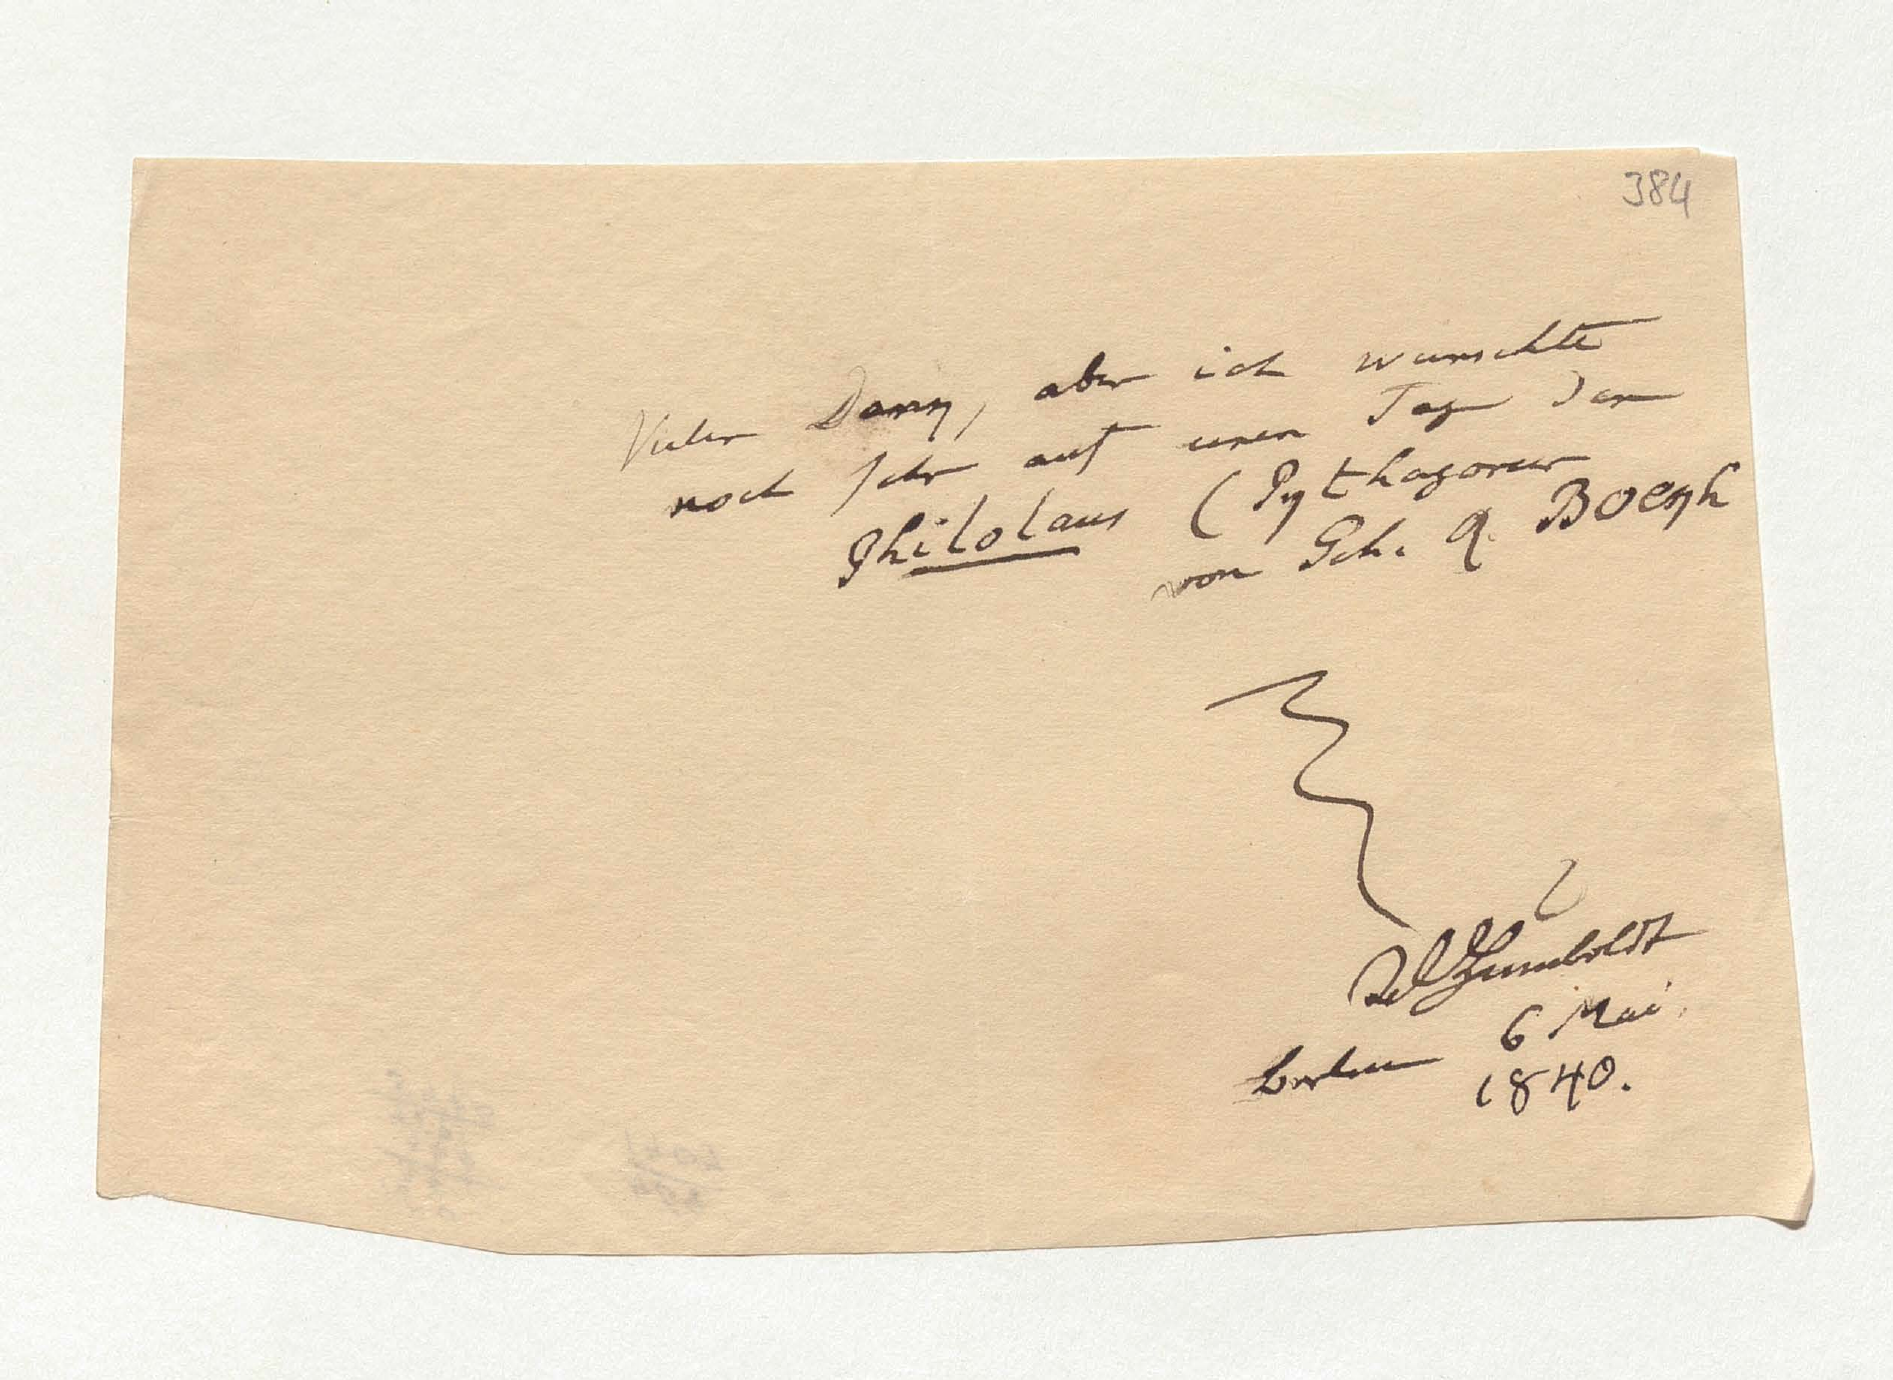 384
Vielen Dank, aber ich wünschte
noch sehr auf einen Tag den
Philolaus (Pythagoreer
von Geh. R. Boeckh
AlHumboldt
6 Mai
Berlin 1840.